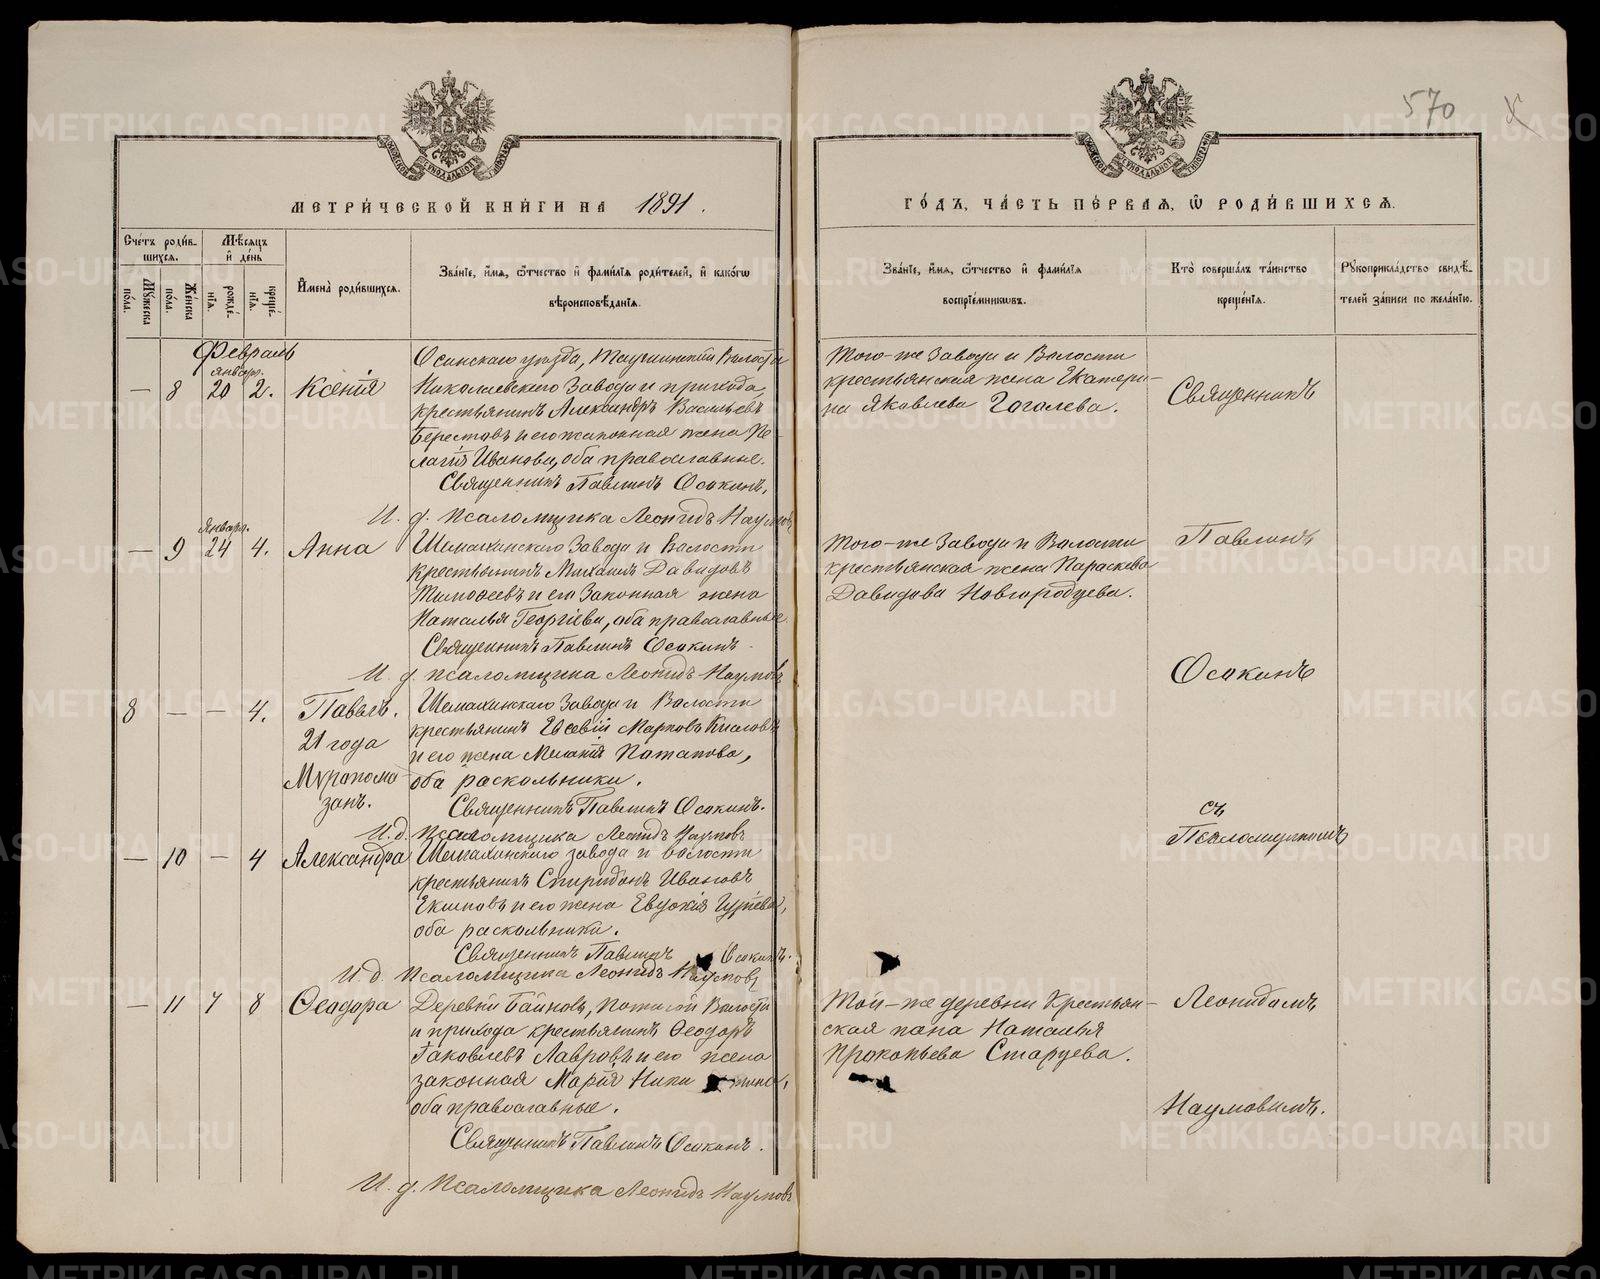 570
МЕТРИ́ЧЕСКОЙ КНИ́ГИ НА 1891.
ГО́ДЪ, ЧА́СТЬ ПЕ́РВАЯ, Ѿ РОДИ́ВШИХСЯ.
Сче́тъ роди́в-
шихся.
Мѣ́сяцъ
и҆ де́нь
Мꙋ́жеска
по́ла.
Же́нска
по́ла.
рожде́-
нїѧ.
креще́-
нїѧ.
И҆мена̀ роди́вшихсѧ.
Зва́нїе, и҆́мѧ, ѻ҆́тчество и҆ фами́лїѧ роди́телей, и҆ како́гѡ
вѣроисповѣ́данїѧ.
Зва́нїе, и҆́мѧ, ѻ҆́тчество и҆ фами́лїѧ
воспрїе́мниковъ.
Кто̀ соверша́лъ та́инство
креще́нїѧ.
Рꙋкоприкла́дство свидѣ́-
телей за́писи по жела́нїю.
Февраль
январ.
— 8 20 2. Ксенія
Осинскаго уѣзда, Таушинской Волости
Николаевскаго Завода и прихода,
крестьянинъ Александръ Васильевъ
Берестовъ и его законная жена Пе-
лагія Иванова, оба православные.
Священникъ Павлинъ Осокинъ.
И. д. псаломщика Леонидъ Наумовъ
Того-же Завода и Волости
крестьянская жена Екатери-
на Яковлева Гоголева.
Священникъ
Январ.
— 9 24 4. Анна
Шемахинскаго Завода и Волости
крестьянинъ Михаилъ Давидовъ
Тимофеевъ и его Законная жена
Наталья Георгіева, оба православные
Священникъ Павлинъ Осокинъ.
И. д. псаломщика Леонидъ Наумовъ
Того-же Завода и Волости
крестьянская жена Параскева
Давидова Новгородцева.
Павлинъ
Осокинъ
8 — — 4. Павелъ.
21 года
Мѵропома
занъ.
Шемахинскаго Завода и Волости
крестьянинъ Евсевій Марковъ Кисловъ
и его жена Меланія Потапова,
оба раскольники.
Священникъ Павлинъ Осокинъ.
И. д. Псаломщика Леонидъ Наумовъ
съ
Псаломщикомъ
— 10 — 4 Александра
Шемахинскаго завода и волости
крестьянинъ Спиридонъ Ивановъ
Екимовъ и его жена Евдокія Гурьева,
оба раскольники.
Священникъ Павлинъ Осокинъ.
И. д. Псаломщика Леонидъ Наумовъ
— 11 7 8 Ѳеодора
Деревни Байковъ, Поташской Волости
и прихода крестьянинъ Ѳеодоръ
Іаковлевъ Лавровъ и его жена
законная Марія Ники
оба православные.
Священникъ Павлинъ Осокинъ.
И. д. Псаломщика Леонидъ Наумовъ
Той-же деревни Крестьян-
ская жена Наталья
Прокопьева Старцева.
Леонидомъ
Наумовымъ.
METRIKI.GASO-URAL.RU